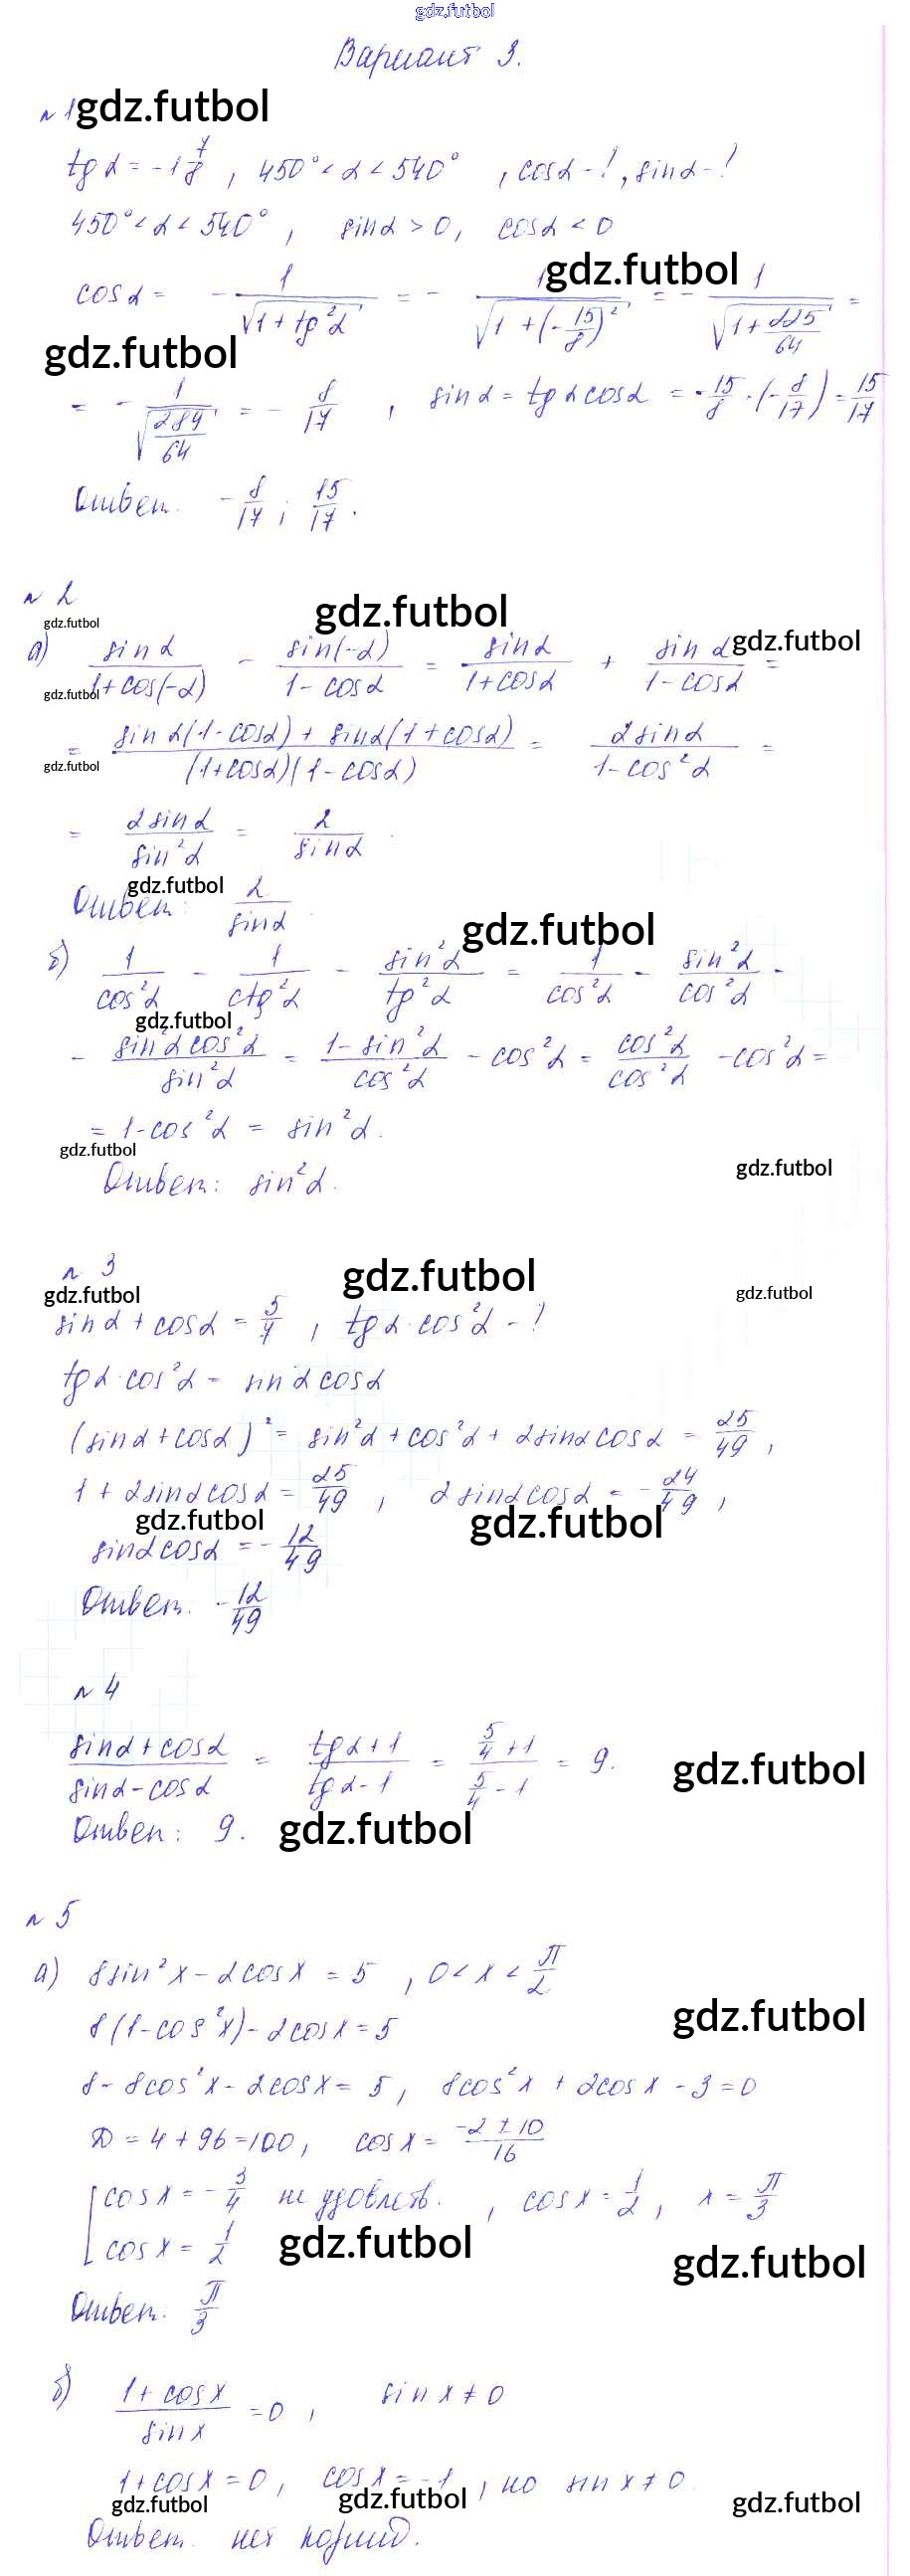 gdz.futbol
Вариант 3.
№ 1 gdz.futbol
tg α = -1 7/8 , 450° < α < 540° , cos α - ! , sin α - ?
450° < α < 540° , sin α > 0, cos α < 0
gdz.futbol
cos α = - 1/√(1 + tg²α) = - 1/√(1 + (-15/8)²) = - 1/√(1 + 225/64) =
gdz.futbol
= - 1/√(289/64) = - 8/17 , sin α = tg α cos α = -15/8 · (-8/17) = 15/17
Ответ. - 8/17 ; 15/17 .
№ 2
gdz.futbol
gdz.futbol
gdz.futbol
а) sin α/(1 + cos(-α)) - sin(-α)/(1 - cos α) = sin α/(1 + cos α) + sin α/(1 - cos α) =
gdz.futbol
= (sin α(1 - cos α) + sin α(1 + cos α))/((1 + cos α)(1 - cos α)) = 2 sin α/(1 - cos²α) =
gdz.futbol
= 2 sin α/sin²α = 2/sin α .
gdz.futbol
Ответ: 2/sin α .
gdz.futbol
б) 1/cos²α - 1/ctg²α - sin²α/tg²α = 1/cos²α - sin²α/cos²α -
gdz.futbol
- sin²α cos²α/sin²α = (1 - sin²α)/cos²α - cos²α = cos²α/cos²α - cos²α =
= 1 - cos²α = sin²α.
gdz.futbol
gdz.futbol
Ответ: sin²α.
№ 3
gdz.futbol
gdz.futbol
gdz.futbol
sin α + cos α = 5/7 , tg α · cos²α - ?
tg α · cos²α = sin α cos α
(sin α + cos α)² = sin²α + cos²α + 2 sin α cos α = 25/49 ,
1 + 2 sin α cos α = 25/49 , 2 sin α cos α = - 24/49 ,
gdz.futbol
gdz.futbol
sin α cos α = - 12/49
Ответ. - 12/49
№ 4
(sin α + cos α)/(sin α - cos α) = (tg α + 1)/(tg α - 1) = (5/4 + 1)/(5/4 - 1) = 9.
gdz.futbol
Ответ: 9.
gdz.futbol
№ 5
а) 8 sin²x - 2 cos x = 5 , 0 < x < π/2
gdz.futbol
8(1 - cos²x) - 2 cos x = 5
8 - 8 cos²x - 2 cos x = 5, 8 cos²x + 2 cos x - 3 = 0
D = 4 + 96 = 100, cos x = (-2 ± 10)/16
[ cos x = - 3/4 не удовлетв. , cos x = 1/2 , x = π/3
cos x = 1/2
gdz.futbol
gdz.futbol
Ответ. π/3
б) (1 + cos x)/sin x = 0 , sin x ≠ 0
1 + cos x = 0, cos x = -1 , но sin x ≠ 0.
gdz.futbol
gdz.futbol
gdz.futbol
Ответ. нет корней.